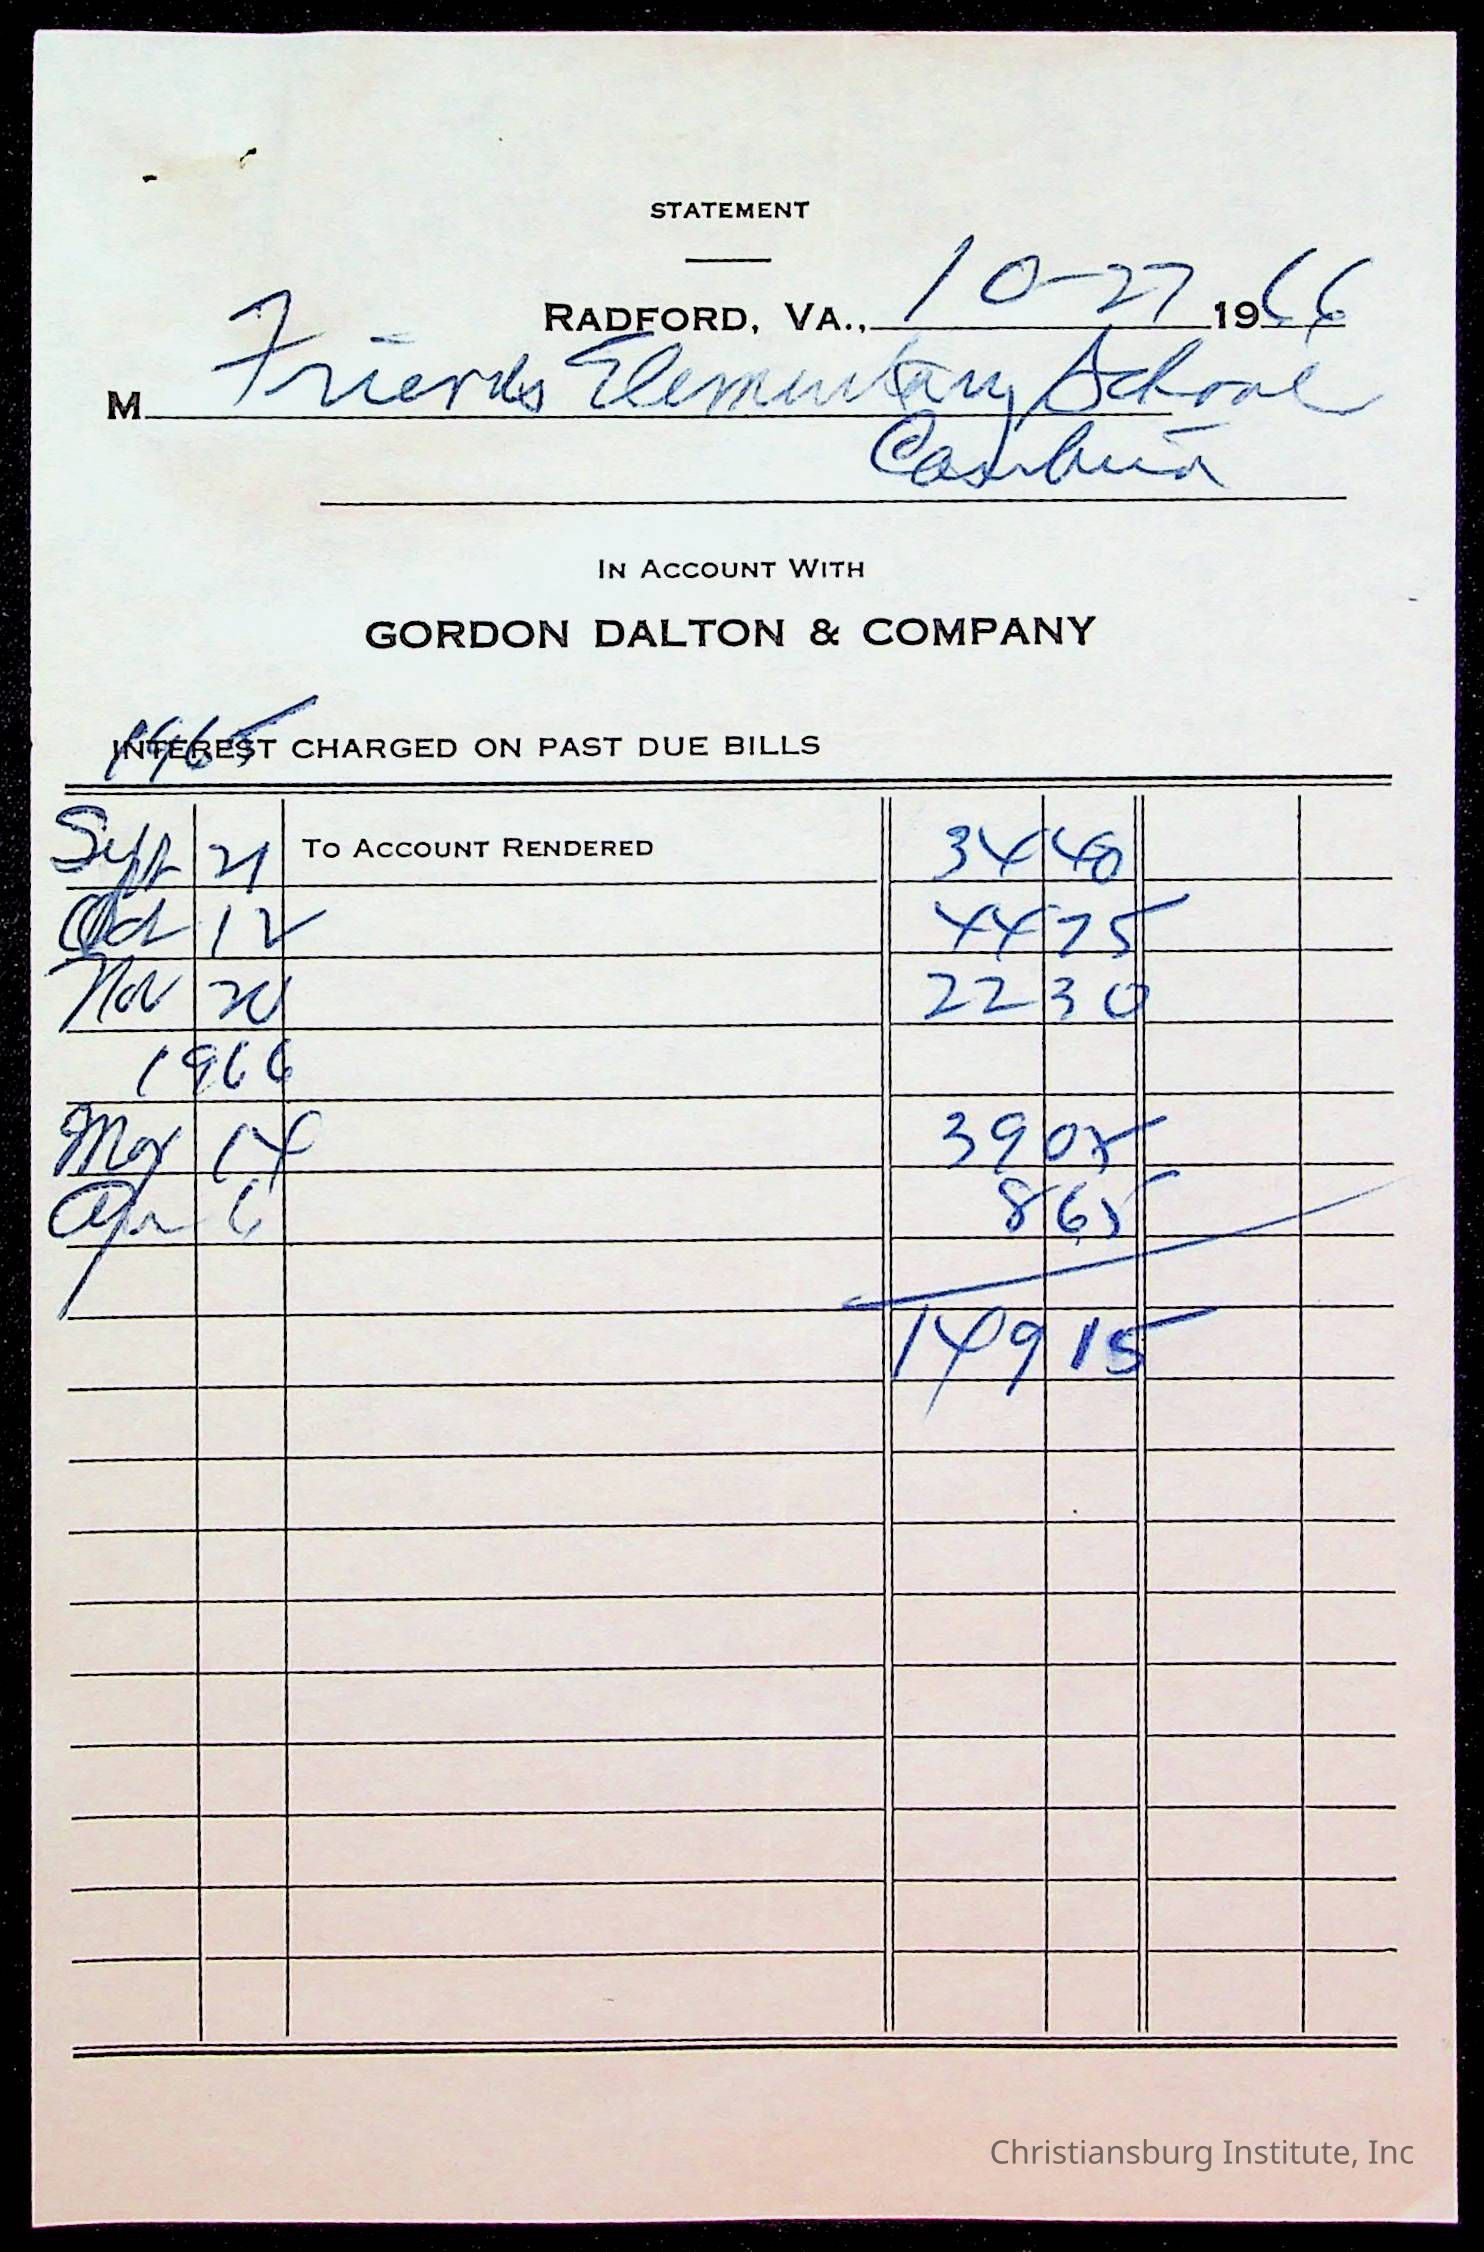 STATEMENT
RADFORD, VA., 10-27 1966
M Friends Elementary School
Cambria
IN ACCOUNT WITH
GORDON DALTON & COMPANY
1965
INTEREST CHARGED ON PAST DUE BILLS
Sept 21 TO ACCOUNT RENDERED 34 40
Oct 12 44 75
Nov 20 22 30
1966
Mar 14 39 05
Apr 6 8 65
149 15
Christiansburg Institute, Inc